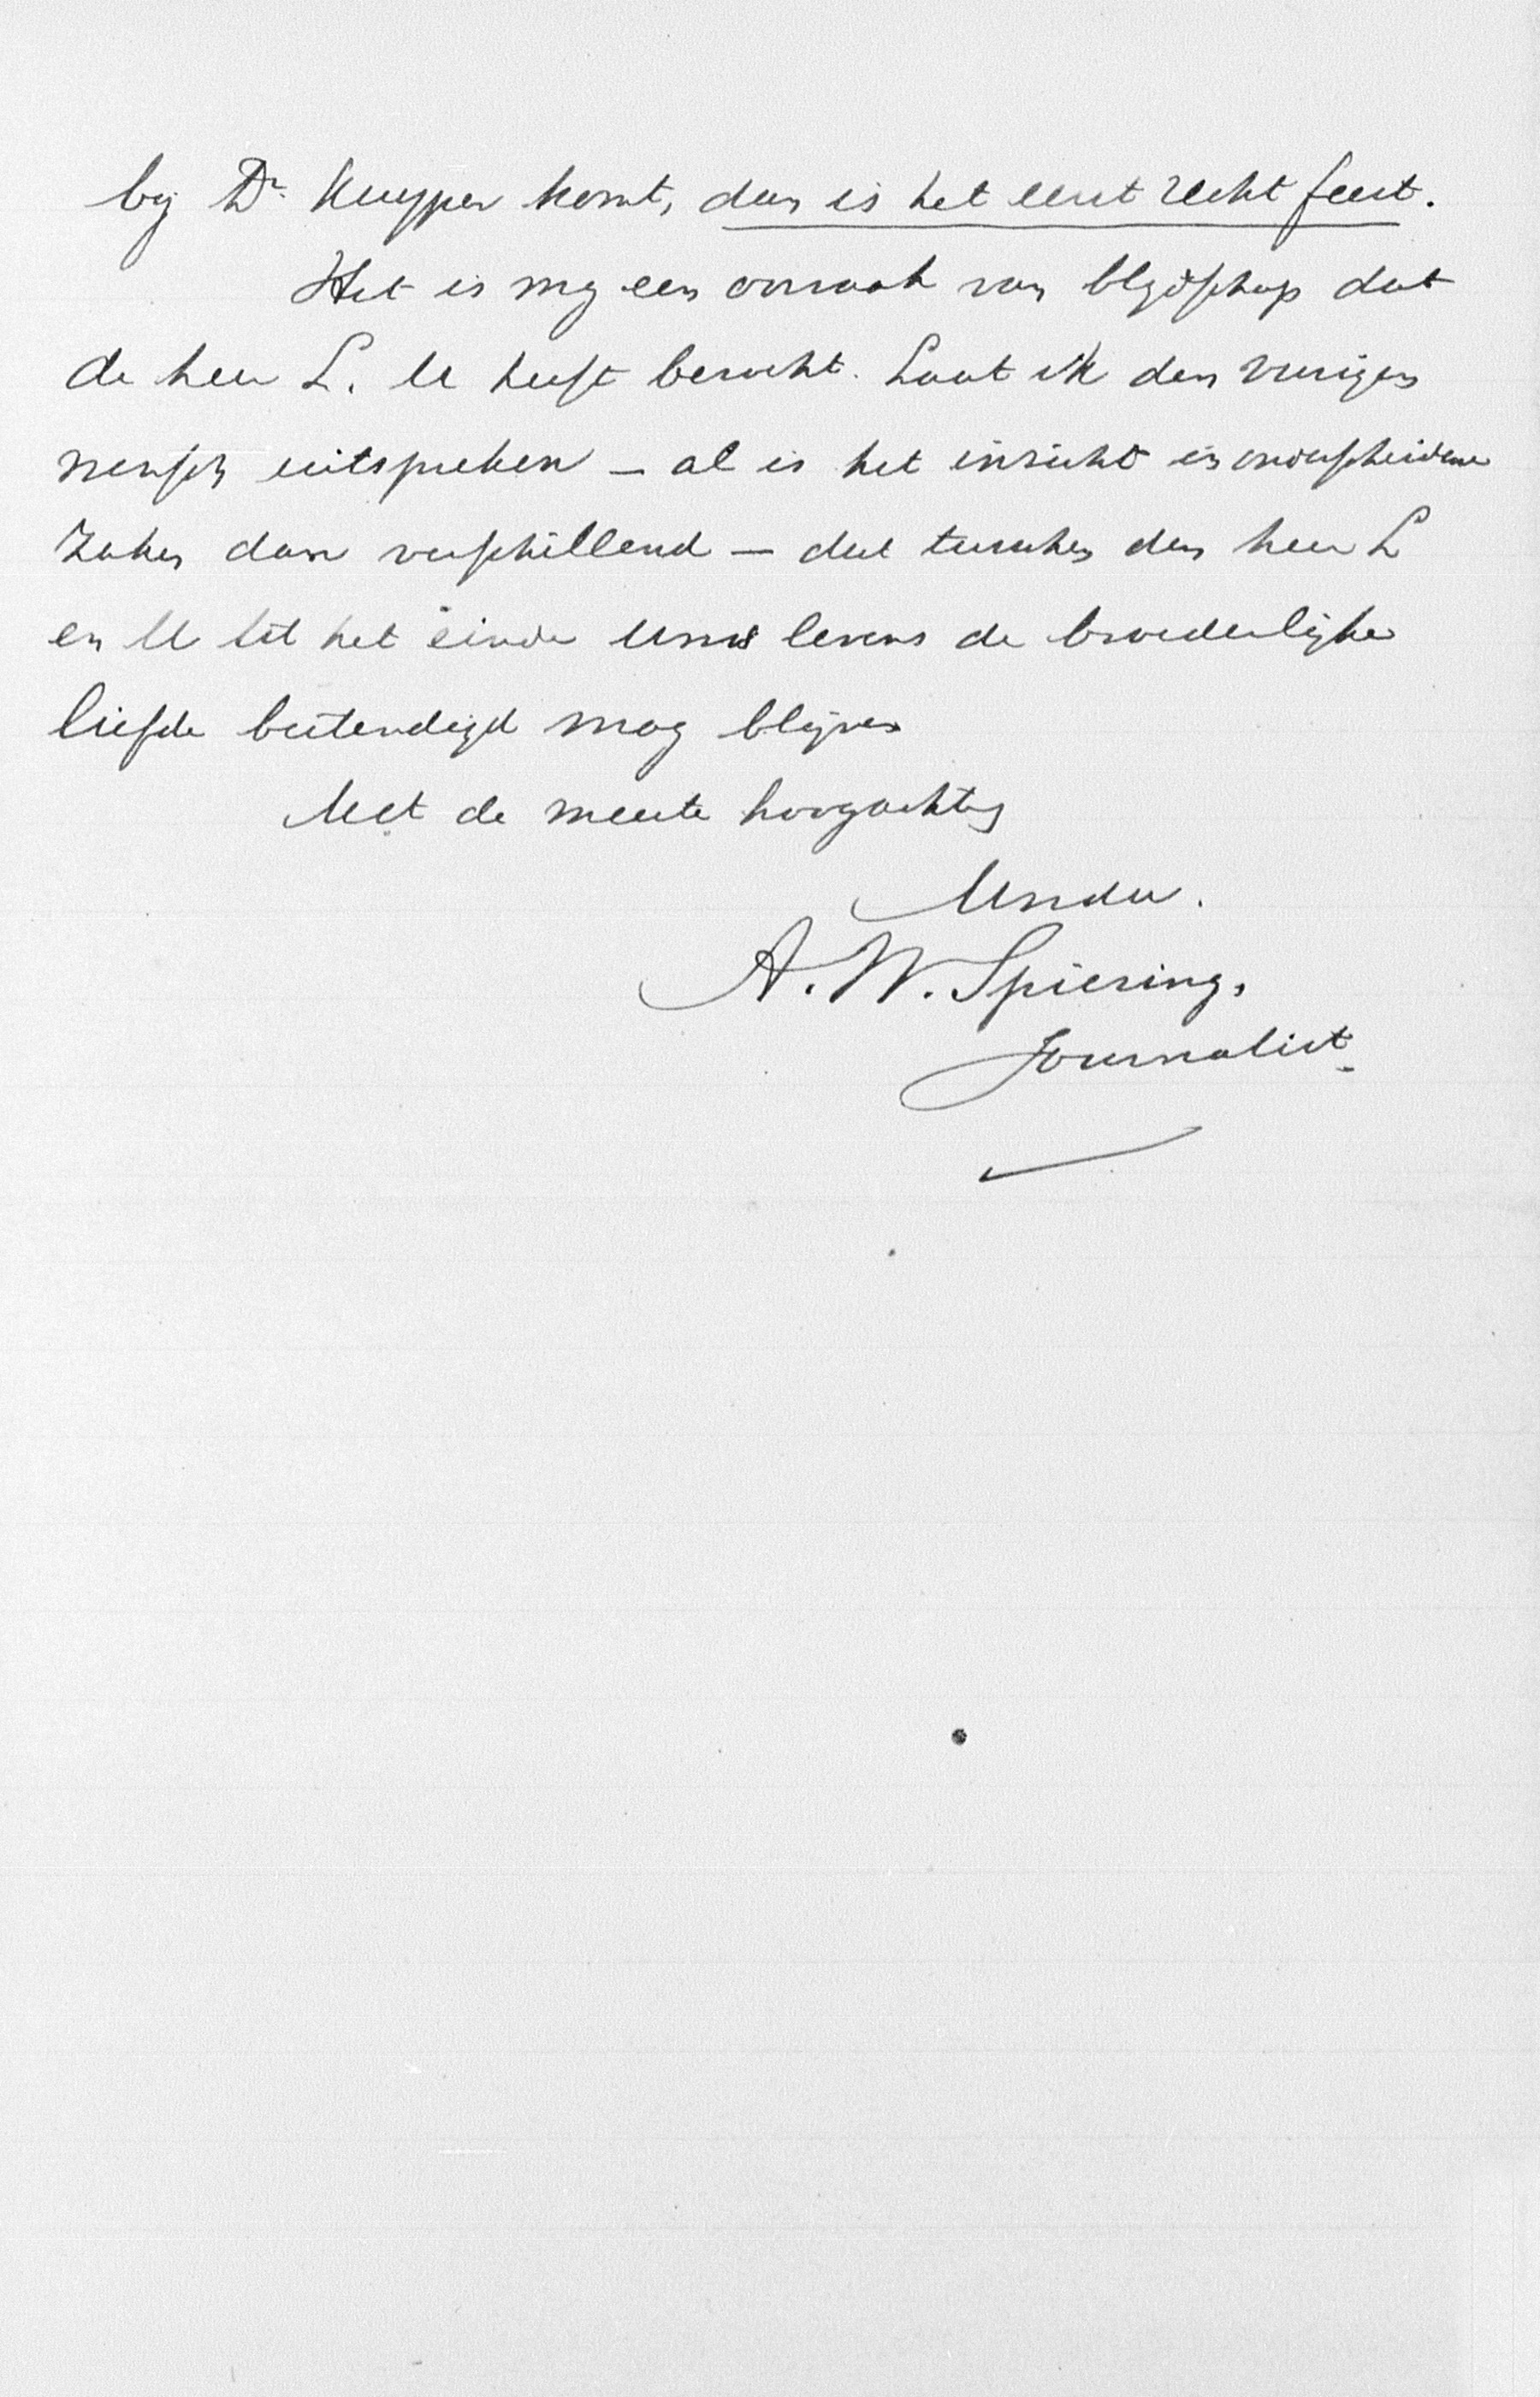 bij Dr. Kuyper komt, dan is het eerst recht feest.
Het is mij een oorzaak van blijdschap dat
de heer L. U heeft bezocht. Laat ik den vurigen
wensch uitspreken – al is het inzicht in onderscheidene
zaken dan verschillend – dat tusschen den heer L
en U tot het einde Uws levens de broederlijke
liefde bestendigd mag blijven
Met de meeste hoogachting
Uwdw.
A. W. Spiering,
Journalist